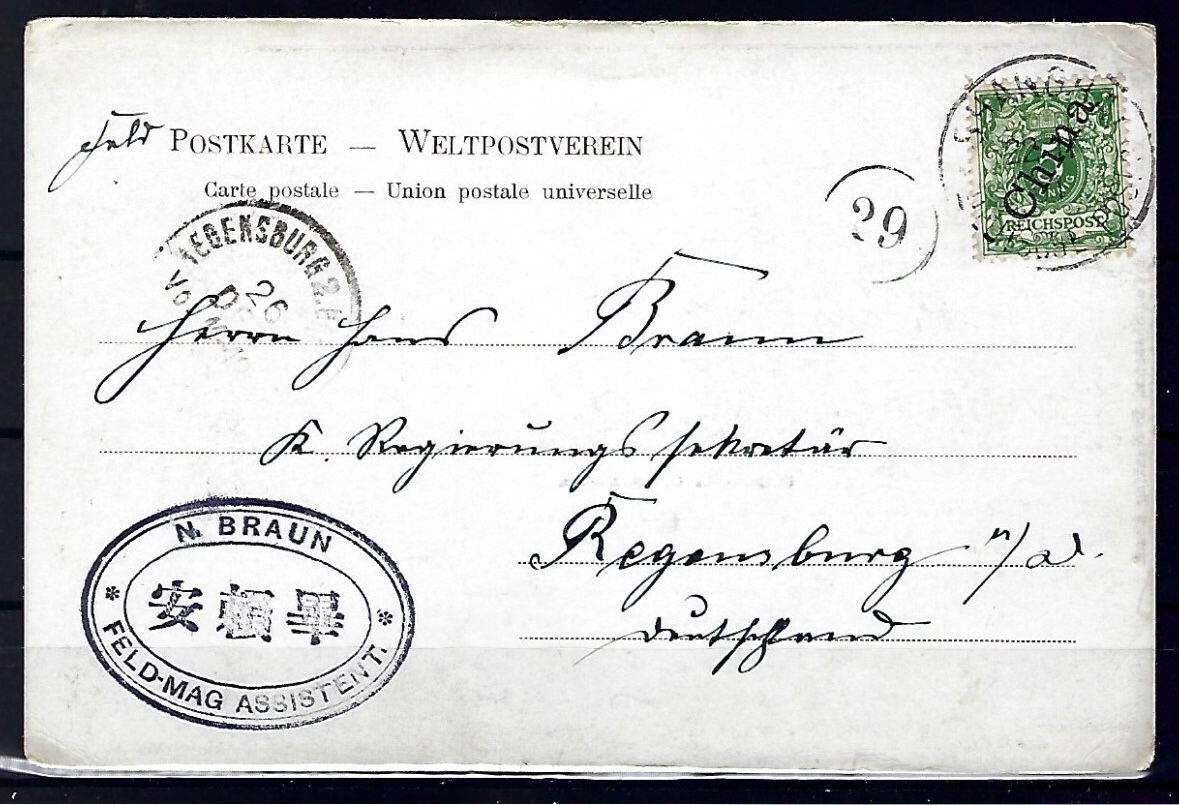 Feld POSTKARTE — WELTPOSTVEREIN
Carte postale — Union postale universelle
SHANGHAI
China
REICHSPOST
29
REGENSBURG 2.
26
Herrn Hans Braun
K. Regierungssekretär
Regensburg a/d.
Deutschland
N. BRAUN
安頼畢
* FELD-MAG ASSISTENT. *